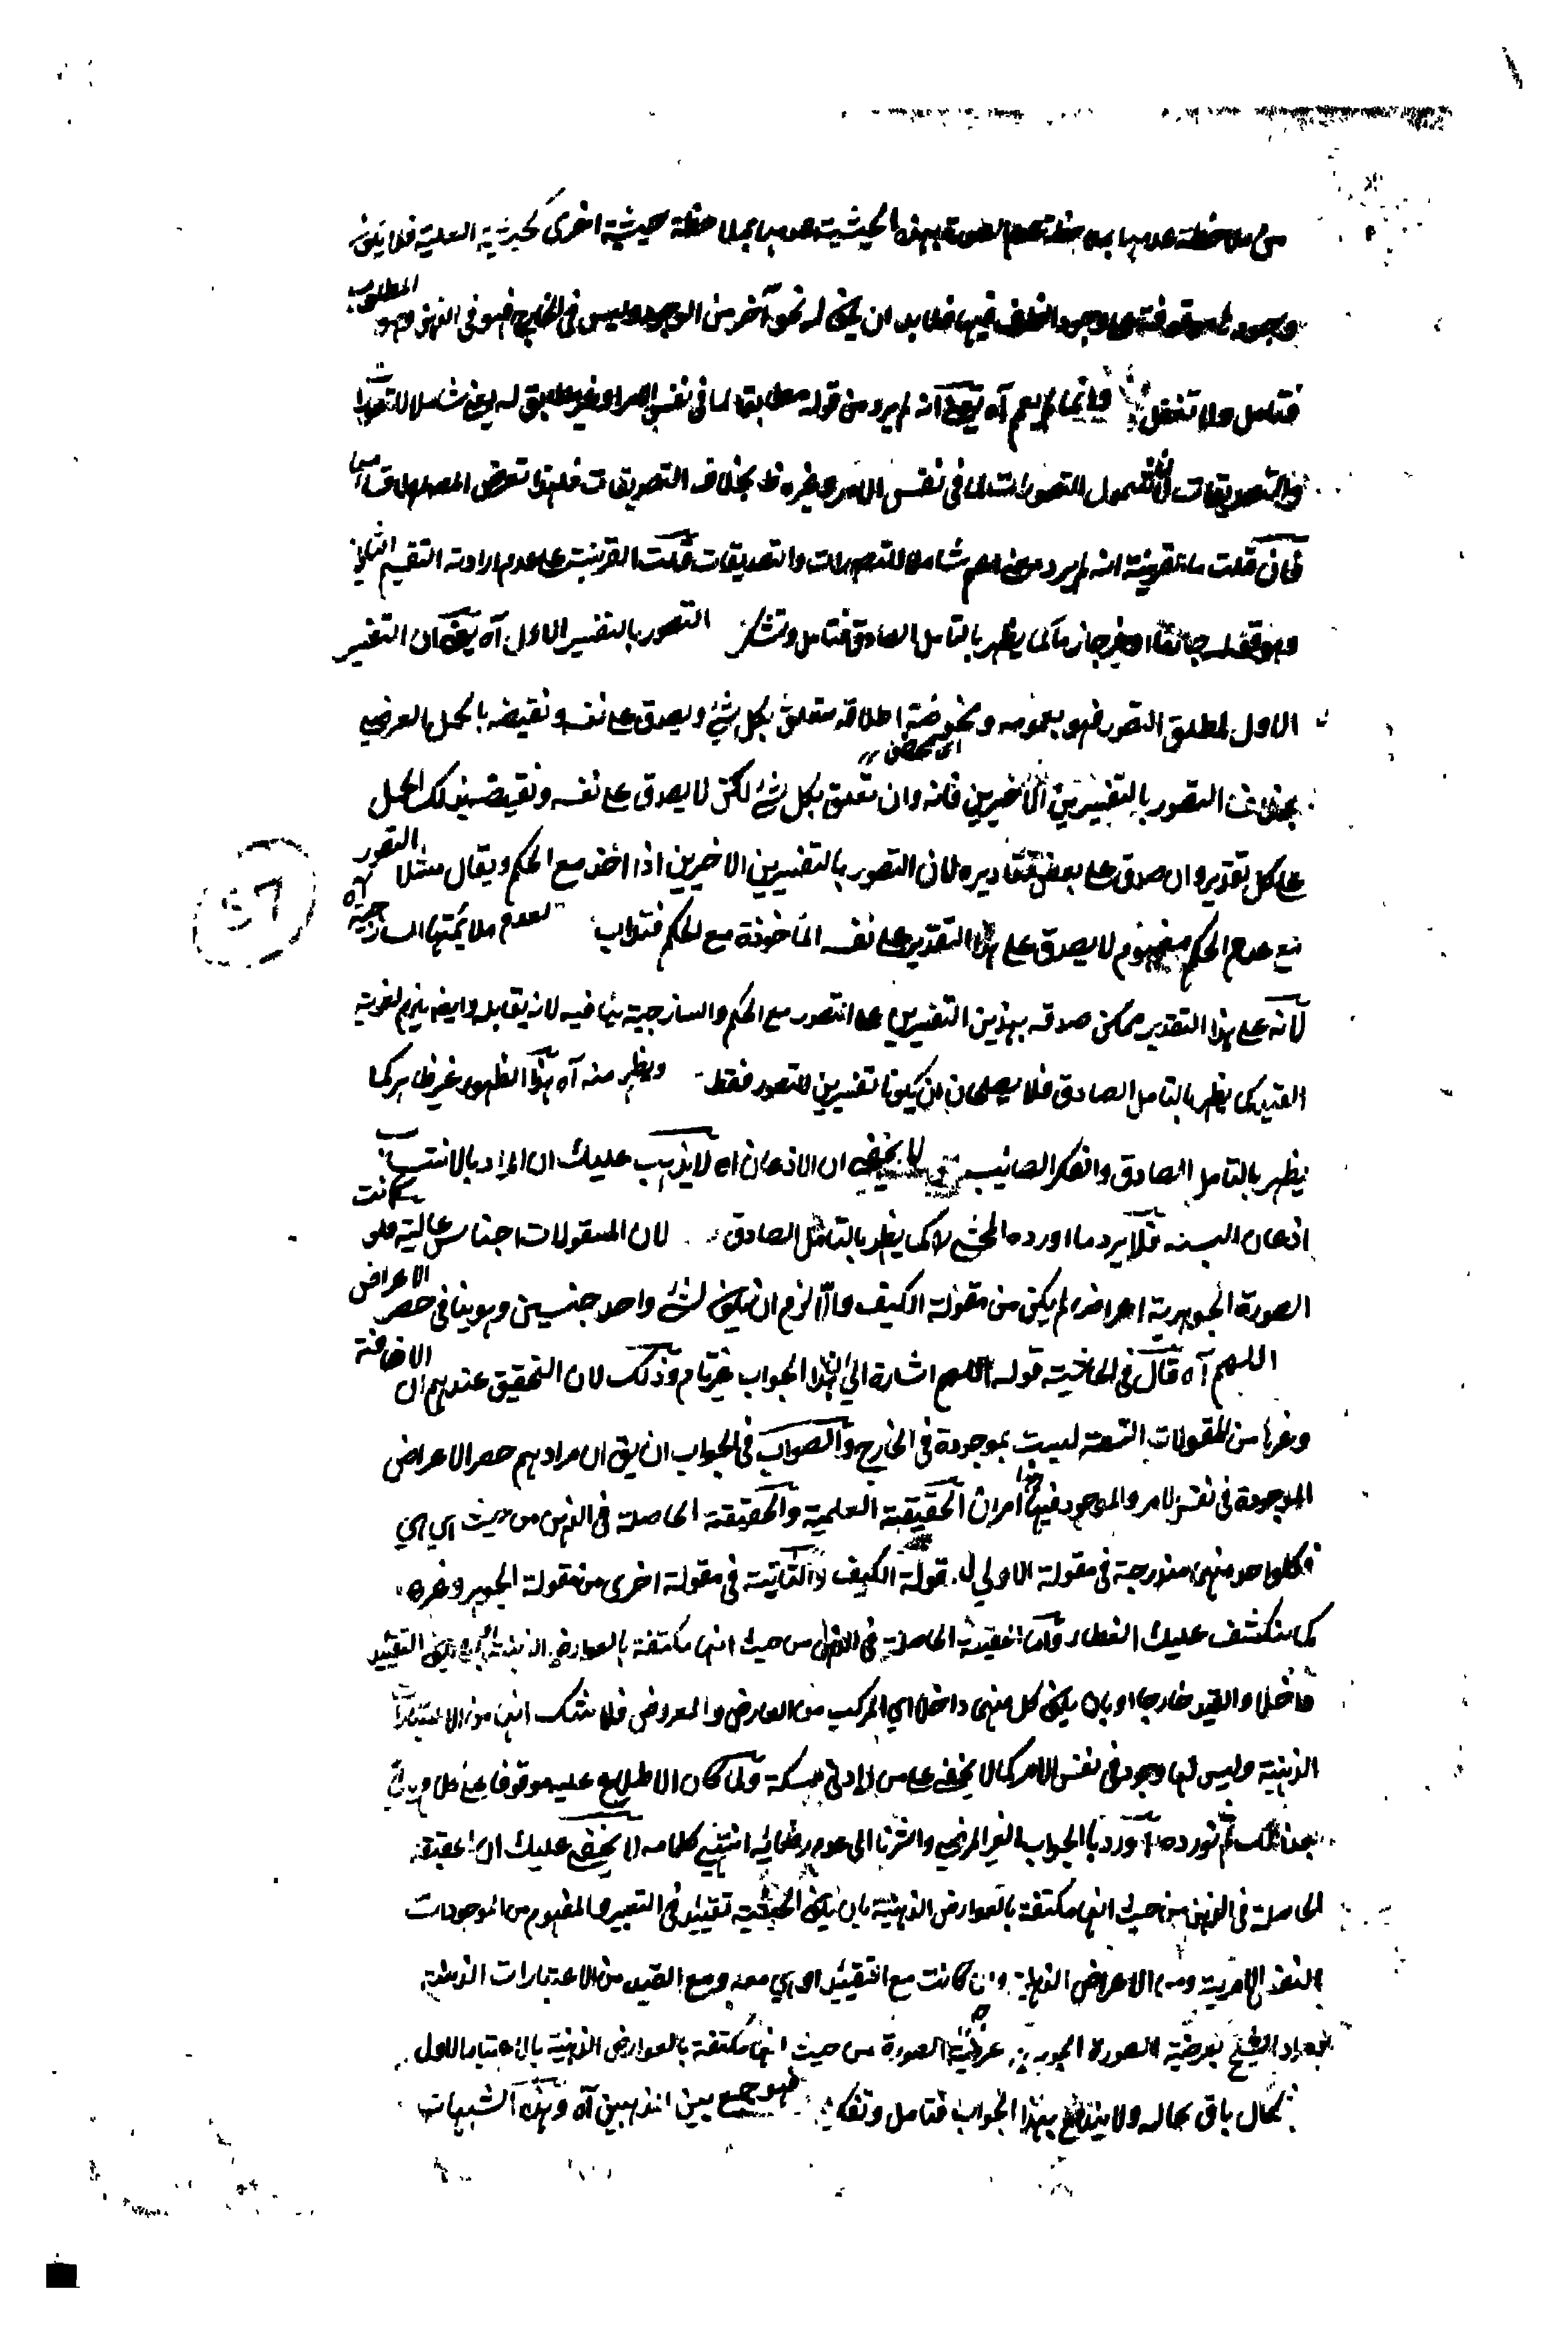 من ملاحظة عدمها بملاحظة عدم الصورة بهذه الحيثية عدمها بملاحظة حيثية اخرى كحيثية العلمية فلا يكون
وجود فيها فلا بد ان يكون له نحو آخر من الوجود وليس في الخارج فهو في الذهن وهو المطلوب
فتامل ولا تغفل وانما لم يعم آه يعني انه لم يرد من قوله مطابقا لما في نفس الامر او غير مطابق له شاملا للتصورات
والتصديقات لان شمول التصورات لما في نفس الامر وغيره ظ بخلاف التصديقات فلهذا تعرض المص
فان قلت ما القرينة انه لم يرد معنى اعم شاملا للتصورات والتصديقات قلت القرينة على عدم ارادته التقسيم الثاني
وهو قوله جازما او غير جازم كما يظهر بالتامل الصادق فتامل وتشكر التصور بالتفسير الاول آه يعني ان التفسير
الاول لمطلق التصور فهو بعمومه ونحوضة اطلاقه متعلق بكل شئ ويصدق على نفسه ونقيضه بالحمل العرضي
اى محض
بخلاف التصور بالتفسيرين الاخيرين فانه وان تعلق بكل شئ لكن لا يصدق على نفسه ونقيضه بذلك الحمل
على كل تقدير وان صدق على بعض تقاديره لان التصور بالتفسيرين الاخيرين اذا اخذ مع الحكم ويقال مثلا التصور
مع عدم الحكم مفهوم لا يصدق على هذا التقدير على نفسه الماخوذة مع الحكم فتداب لعدم ملائمتها الساذجية آه
لانه على هذا التقدير ممكن صدقه بهذين التفسيرين على التصور مع الحكم والساذجية ينافيه لانه يقابله وايضا يلزم لغوية
القيد كما يظهر بالتامل الصادق فلا يصلحان ان يكونا تفسيرين للتصور فقط ويظهر منه آه هذا الظهور غير ظاهر كما
يظهر بالتامل الصادق والفكر الصائب لا يخفى ان الاذعان اه لا يذهب عليك ان المراد بالانتساب
اذعان النسبة فلا يرد ما اورده المحشي كما يظهر بالتامل الصادق لان المقولات اجناس عالية فلو كانت
الصورة الجوهرية اعراضا لم يكن من مقولة الكيف والا لزم ان يكون لشئ واحد جنسين وهو ينافي حصر الاعراض
اللهم آه قال في الحاشية قوله اللهم اشارة الى ان هذا الجواب غير تام وذلك لان التحقيق عندهم ان الاضافة
وغيرها من المقولات التسعة ليست بموجودة في الخارج والصواب في الجواب ان يق ان مرادهم حصر الاعراض
الموجودة في نفس الامر والموجود فيها امران الحقيقة العلمية والحقيقة الحاصلة في الذهن من حيث هي هي
فكل واحد منهما مندرجة في مقولة الاولى في مقولة الكيف والثانية في مقولة اخرى من مقولة الجوهر وغيره
كما ينكشف عليك الغطاء واما الحقيقة الحاصلة في الذهن من حيث انها مكتنفة بالعوارض الذهنية بان يكون التقييد
داخلا والقيد خارجا او بان يكون كل منهما داخلا اي المركب من العارض والمعروض فلا شك انها من الاعتبارات
الذهنية وليس لها وجود في نفس الامر كما لا يخفى على من له ادنى مسكة ولما كان الاطلاع عليه موقوفا
لم نورده اوردنا الجواب الغير المرضي واشرنا الى عدم رضائه انتهى كلامه لا يخفى عليك ان الحقيقة
الحاصلة في الذهن من حيث انها مكتنفة بالعوارض الذهنية بان يكون الحيثية تقييد في التعبير والمفهوم من الموجودات
النفس الامرية ومن الاعراض وان كانت مع التقييد او هي معه ومع القيد من الاعتبارات الذهنية
مراد الشيخ بعرضية الصورة الجوهرية عرضية الصورة من حيث انها مكتنفة بالعوارض الذهنية بالاعتبار الاول
باق بحاله ولا يندفع بهذا الجواب فتامل وتفكر فهو جمع بين المذهبين آه وهذه الشبهات
57